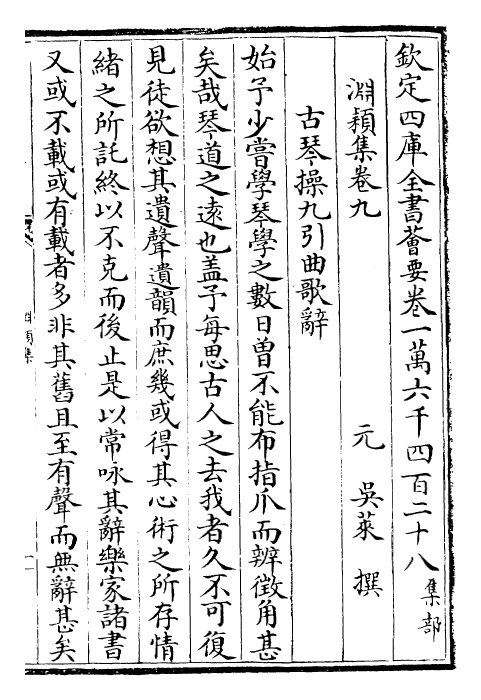 欽定四庫全書薈要卷一萬六千四百二十八集部
淵穎集卷九　元　吳萊　撰
古琴操九引曲歌辭
始予少嘗學琴學之數日曽不能布指爪而辨徴角甚
矣哉琴道之逺也盖予每思古人之去我者久不可復
見徒欲想其遺聲遺韻而庶幾或得其心術之所存情
緒之所託終以不克而後止是以常咏其辭樂家諸書
又或不載或有載者多非其舊且至有聲而無辭甚矣